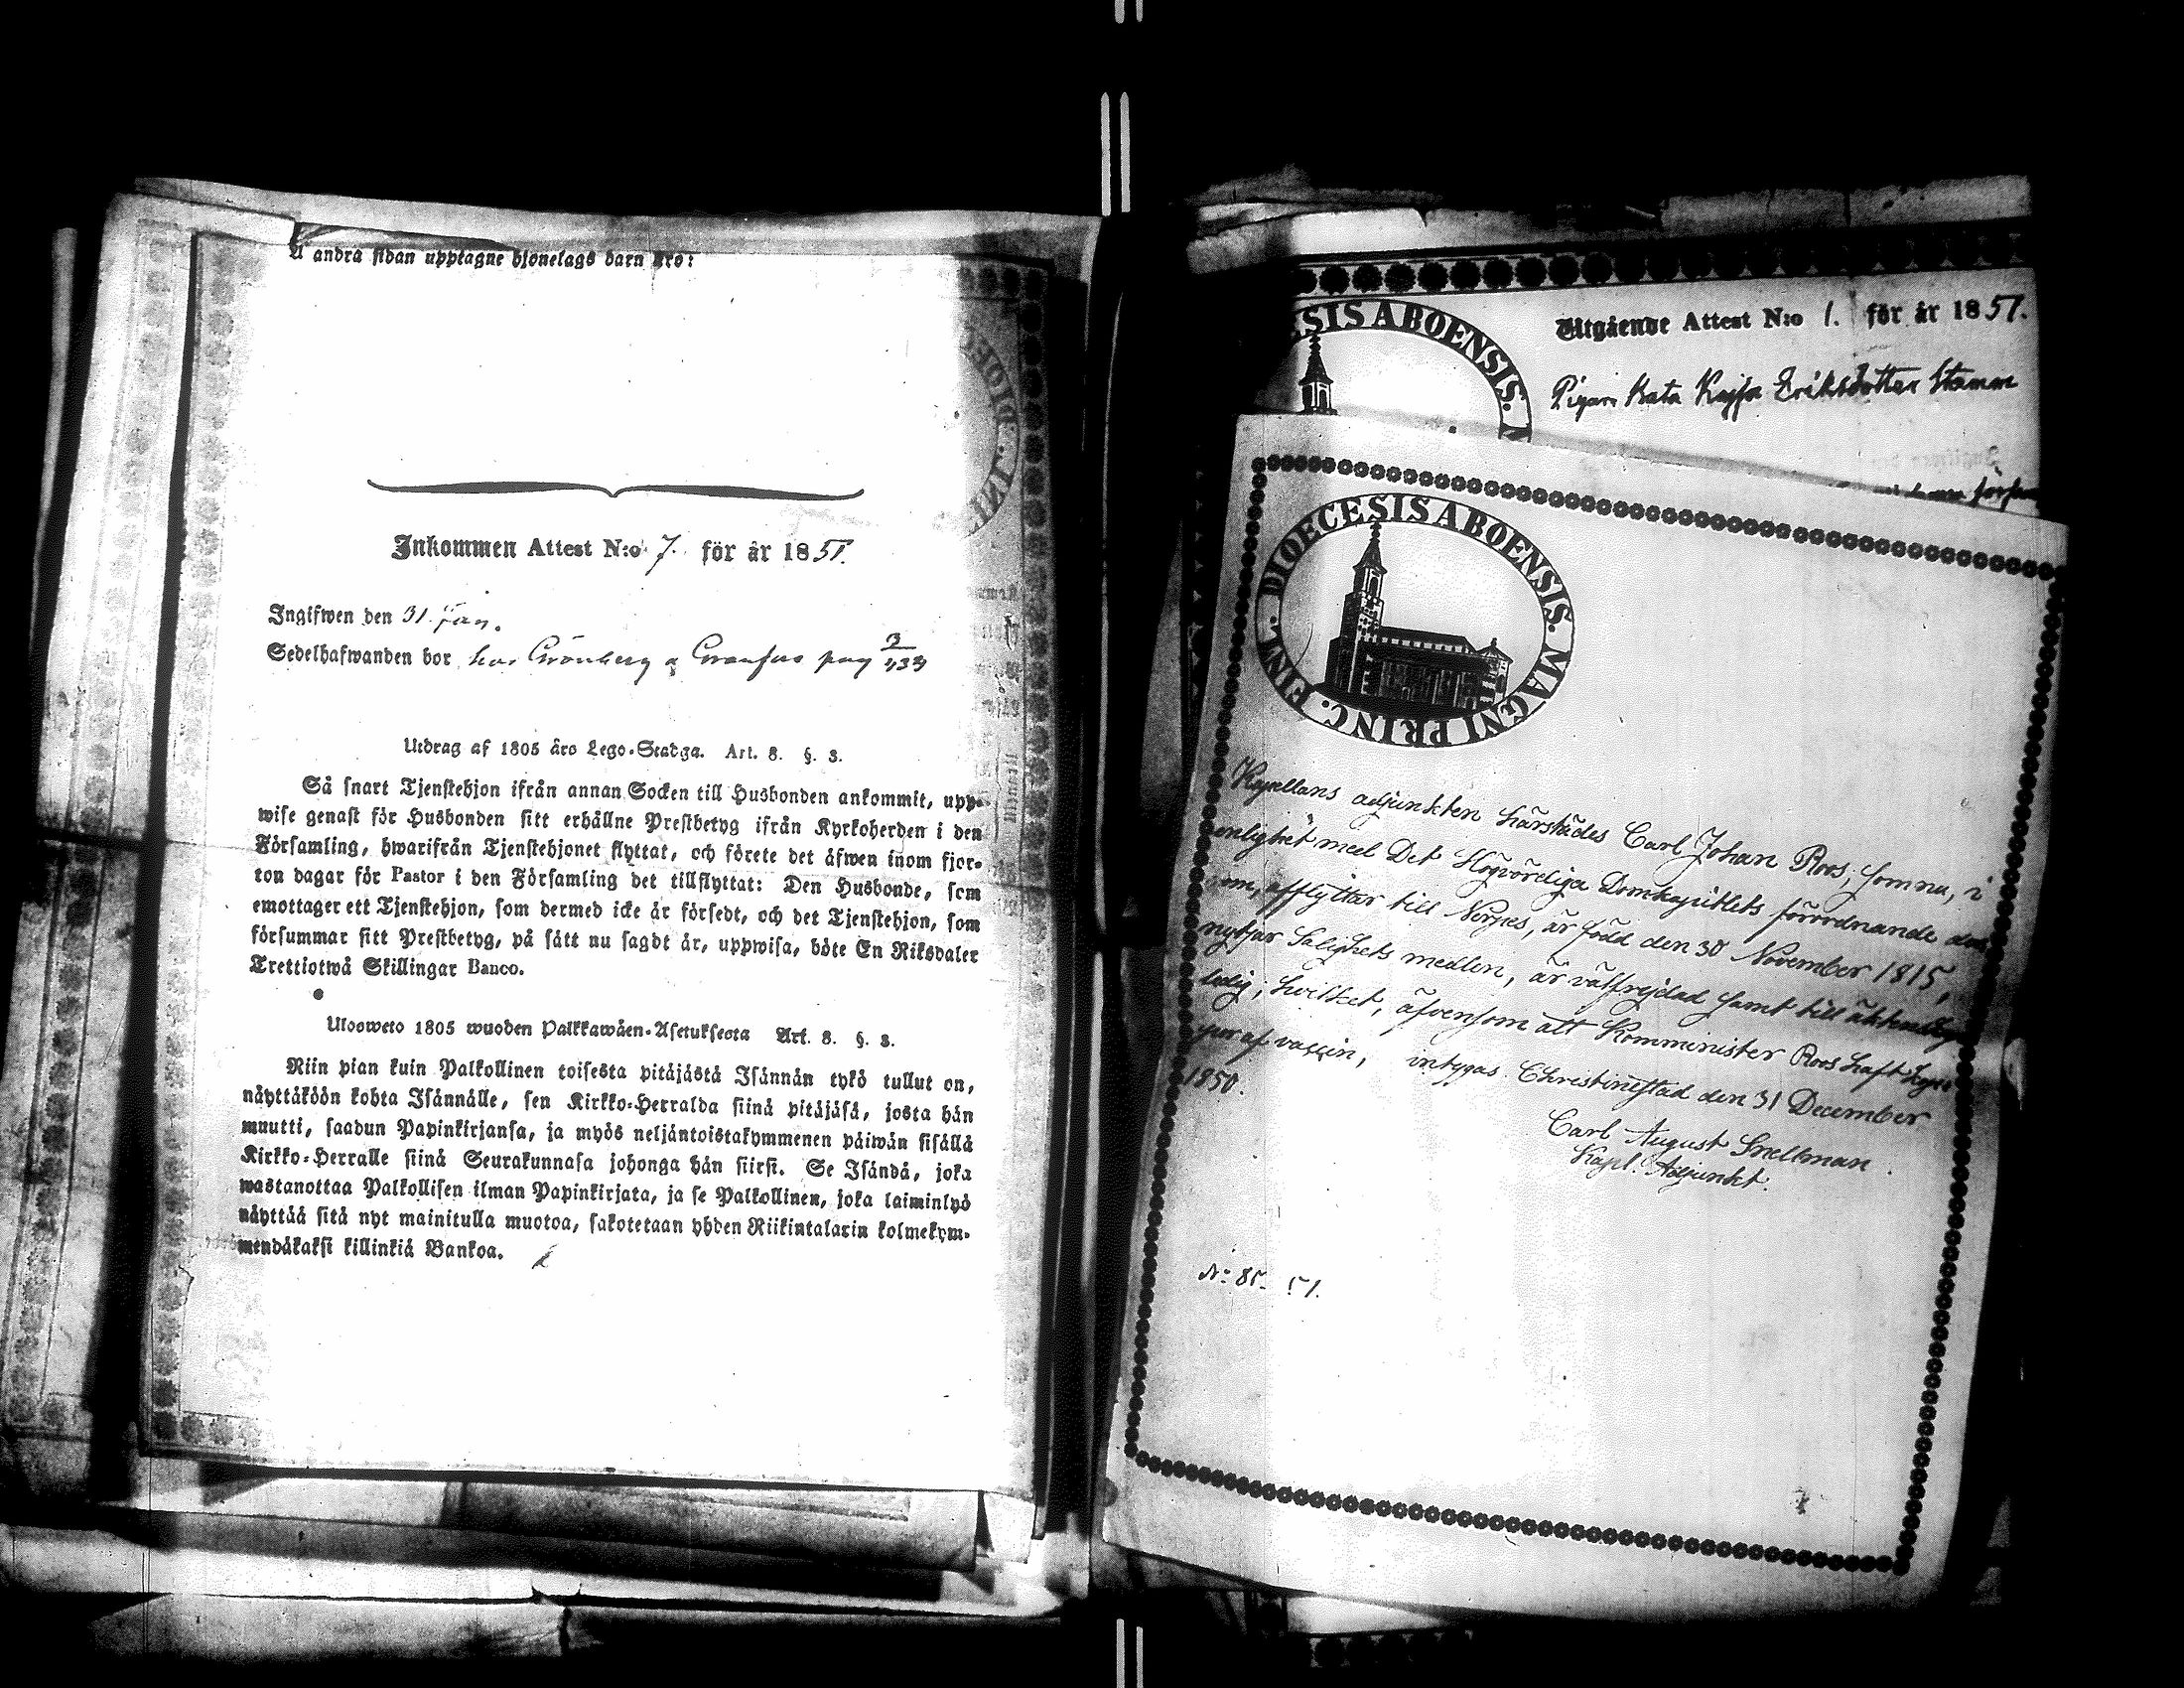 Å andra sidan upptagne hjonelags barn äro:
Inkommen Attest N:o 7. för år 1851.
Ingifwen den 31 Jan.
Sedelhafwanden bor hos Grönberg a pag 3/433
Utdrag af 1805 års Lego-Stadga. Art. 8. §. 3.
Så snart Tjenstehjon ifrån annan Socken till Husbonden ankommit, upp-
wise genast för Husbonden sitt erhållne Prestbetyg ifrån Kyrkoherden i den
Församling, hwarifrån Tjenstehjonet flyttat, och förete det äfwen inom fjor-
ton dagar för Pastor i den Församling det tillflyttat: Den Husbonde, som
emottager ett Tjenstehjon, som dermed icke är försedt, och det Tjenstehjon, som
försummar sitt Prestbetyg, på sätt nu sagdt är, uppwisa, böte En Riksdaler
Trettiotwå Skillingar Banco.
Ulosweto 1805 wuoden Palkkawäen-Asetuksesta Art. 8. §. 3.
Niin pian kuin Palkollinen toisesta pitäjästä Isännän tykö tullut on,
näyttäköön kohta Isännälle, sen Kirkko-Herralda siinä pitäjäsä, josta hän
muutti, saadun Papinkirjansa, ja myös neljäntoistakymmenen päiwän sisällä
Kirkko-Herralle siinä Seurakunnasa johonga hän siirsi. Se Isändä, joka
wastanottaa Palkollisen ilman Papinkirjata, ja se Palkollinen, joka laiminlyö
näyttää sitä nyt mainitulla muotoa, sakotetaan yhden Riikintalarin kolmekym-
mendäkaksi killinkiä Bankoa.
SIS ABOENSIS.
Utgående Attest N:o 1. för år 1851.
Pigan Kata Kajsa Eriksdotter Stamm
DIOECESIS ABOENSIS. MAGNI PRINC. FINL.
Kapellans adjunkten härstädes Carl Johan Roos, som nu, i
enlighet med Det Högvördiga Domkapitlets förordnande der
om, afflyttar till Nerpes, är född den 30 November 1815,
nyttjar Salighets medlen, är välfrejdad samt till äktenskap
ledig; hvilket, äfvensom att Komminister Roos haft kop
por af vaccin, intygas. Christinestad den 31 December
1850.
Carl August Snellman.
Kapl. Adjunkt.
N:o 85. 51.